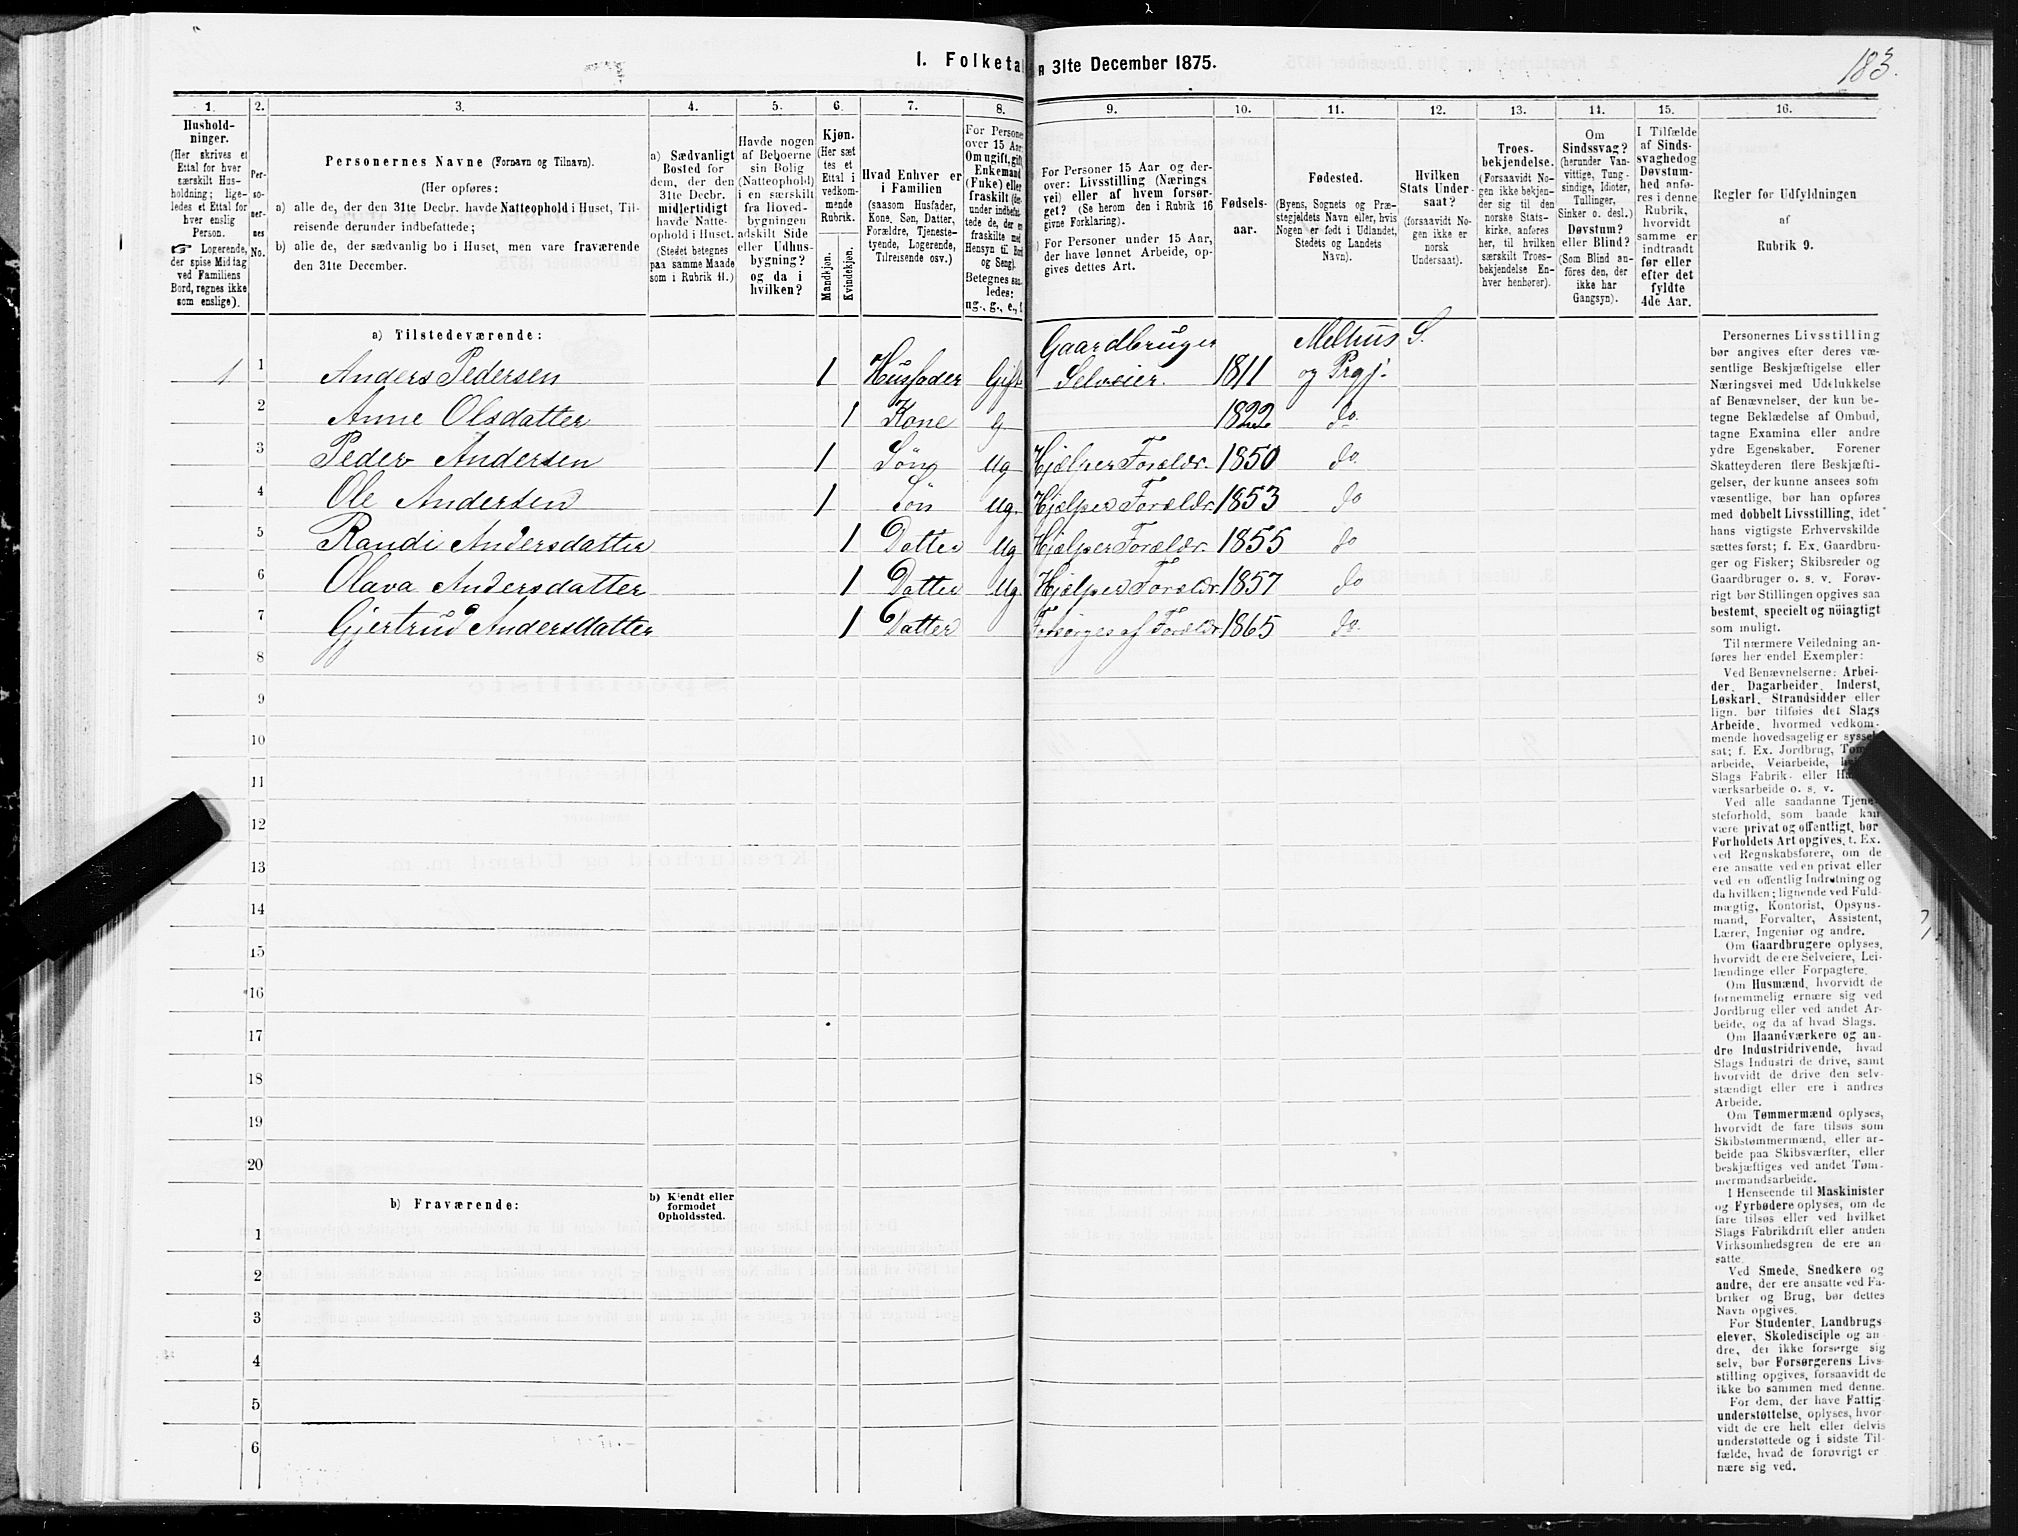 183.
I. Folketal
R 31te December 1875.
1. 2. 3. 4. 5. 6. 7. 8. 9. 10. 11. 12. 13. 14. 15. 16.
Hushold-
ninger.
(Her skrives et
Ettal for hver
særskilt Hus-
holdning; lige-
ledes et Ettal for
hver enslig
Person.
☞ Logerende,
der spise Middag
ved Familiens
Bord, regnes ikke
som enslige).
Per-
so-
ner-
nes
No.
Personernes Navne (Fornavn og Tilnavn).
(Her opføres:
a) alle de, der den 31te Decbr. havde Natteophold i Huset, Til-
reisende derunder indbefattede;
b) alle de, der sædvanlig bo i Huset, men vare fraværende
den 31te December.
a) Sædvanligt
Bosted for
dem, der den
31te Decbr.
midlertidigt
havde Natte-
ophold i Huset.
(Stedet betegnes
paa samme Maade
som i Rubrik 11.)
Havde nogen
af Beboerne
sin Bolig
(Natteophold)
i en særskilt
fra Hoved-
bygningen
adskilt Side
eller Udhus-
bygning?
og da i
hvilken?
Kjøn.
(Her sæt
tes et
Ettal i
vedkom-
mende
Rubrik.
Mandkjøn.
Kvindekjøn.
Hvad Enhver er
i Familien
(saasom Husfader,
Kone, Søn, Datter,
Forældre, Tjeneste-
tyende, Logerende,
Tilreisende osv.)
For Persone
over 15 Aar:
Om ugift, gift,
Enkemand
(Fuke) eller
fraskilt (her-
under indbefat-
tede de, der er
fraskilte med
Hensyn til Bord
og Seng).
Betegnes saa-
ledes:
ug., g., e., f
For Personer 15 Aar og der-
over: Livsstilling (Nærings
vei) eller af hvem forsør-
get? (Se herom den i Rubrik 16
givne Forklaring).
For Personer under 15 Aar,
der have lønnet Arbeide, op-
gives dettes Art.
Fødsels-
aar.
Fødested.
(Byens, Sognets og Præ-
stegjeldets Navn eller, hvis
Nogen er født i Udlandet,
Stedets og Landets
Navn).
Hvilken
Stats Under-
saat?
(forsaavidt No-
gen ikke er
norsk
Undersaat).
Troes-
bekjendelse.
(Forsaavidt No-
gen ikke bekjen-
der sig til den
norske Stats-
kirke, anføres
her, til hvilken
særskilt Troes-
bekjendelse En-
hver henhører).
Om
Sindssvag?
(herunder Van-
vittige, Tung-
sindige, Idioter,
Tullinger,
Sinker o. desl.)
Døvstum?
eller Blind?
(Som Blind an-
føres den, der
ikke har
Gangsyn).
I Tilfælde
af Sinds-
svaghed og
Døvstum-
hed anfø-
res i denne
Rubrik,
hvorvidt
samme er
indtraadt
før eller
efter det
fyldte
4de Aar.
Regler for Udfyldningen
af
Rubrik 9.
a) Tilstedeværende:
1 1 Anders Pedersen 1 Husfader Gift Gaardbruger Selveier. 1811 Melhus S. og Prgj.
2 Anne Olsdatter 1 Kone g 1822 do.
3 Peder Andersen 1 Søn ug Hjælper Forældr. 1850 do.
4 Ole Andersen 1 Søn ug. Hjælper Forældr. 1853 do
5 Randi Andersdatter 1 Datter ug Hjælper Forældr. 1855 do
6 Olava Andersdatter 1 Datter ug. Hjælper Forældr. 1857 do
7 Gjertrud Andersdatter 1 Datter Forsørges af Forældr 1865 do.
8
9
10
11
12
13
14
15
16
17
18
19
20
b) Fraværende:
b) Kjendt eller
formodet
Opholdssted.
1
2
3
4
5
6
Personernes Livsstilling
bør angives efter deres væ-
sentlige Beskjæftigelse eller
Næringsvei med Udelukkelse
af Benævnelser, der kun be-
tegne Beklædelse af Ombud,
tagne Examina eller andre
ydre Egenskaber. Forener
Skatteyderen flere Beskjæfti-
gelser, der kunne ansees som
væsentlige, bør han opføres
med dobbelt Livsstilling, idet
hans vigtigste Erhvervskilde
sættes først; f. Ex. Gaardbru-
ger og Fisker; Skibsreder og
Gaardbruger o. s. v. Forøv-
rigt bør Stillingen opgives saa
bestemt, specielt og nöiagtigt
som muligt.
Til nærmere Veiledning an-
føres her endel Exempler:
Ved Benævnelserne: Arbei-
der, Dagarbeider, Inderst,
Løskarl, Strandsidder eller
lign. bør tilføies det Slags
Arbeide, hvormed vedkom-
mende hovedsagelig er syssel-
sat; f. Ex. Jordbrug, Tøm-
arbeide, Veiarbeide,
Slags Fabrik- eller
værksarbeide o. s. v.
Ved alle saadanne Tjene-
steforhold, som baade kan
være privat og offentligt, bør
Forholdets Art opgives, t. Ex.
ved Regnskabsførere, om de
ere ansatte ved en privat eller
ved en offentlig Indretning og
da hvilken; lignende ved Fuld-
mægtig, Kontorist, Opsyns-
mand, Forvalter, Assistent,
Lærer, Ingeniør og andre.
Om Gaardbrugere oplyses,
hvorvidt de ere Selveiere, Lei-
lændinge eller Forpagtere.
Om Husmænd, hvorvidt de
fornemmelig ernære sig ved
Jordbrug eller ved andet Ar-
beide, og da af hvad Slags.
Om Haandværkere og an-
dre Industridrivende, hvad
Slags Industri de drive, samt
hvorvidt de drive den selv-
stændigt eller ere i andres
Arbeide.
Om Tømmermænd oplyses,
hvorvidt de fare tilsøs som
Skibstømmermænd, eller ar-
beide paa Skibsværfter, eller
beskjæftiges ved andet Tøm-
mermandsarbeide.
I Henseende til Maskinister
og Fyrbødere oplyses, om de
fare tilsøs eller ved hvilket
Slags Fabrikdrift eller anden
Virksomhedsgren de ere an-
satte.
Ved Smede, Snedkere og
andre, der ere ansatte ved Fa-
briker og Brug, bør dettes
Navn opgives.
For Studenter, Landbrugs-
elever, Skoledisciple og an-
dre, der ikke forsørge sig
selv, bør Forsørgerens Livs-
stilling opgives, forsaavidt de
ikke bo sammen med denne.
For dem, der have Fattig-
understøttelse, oplyses, hvor-
vidt de ere helt eller delvis
understøttede og i sidste Til-
fælde, hvad de forøvrigt er-
nære sig ved.